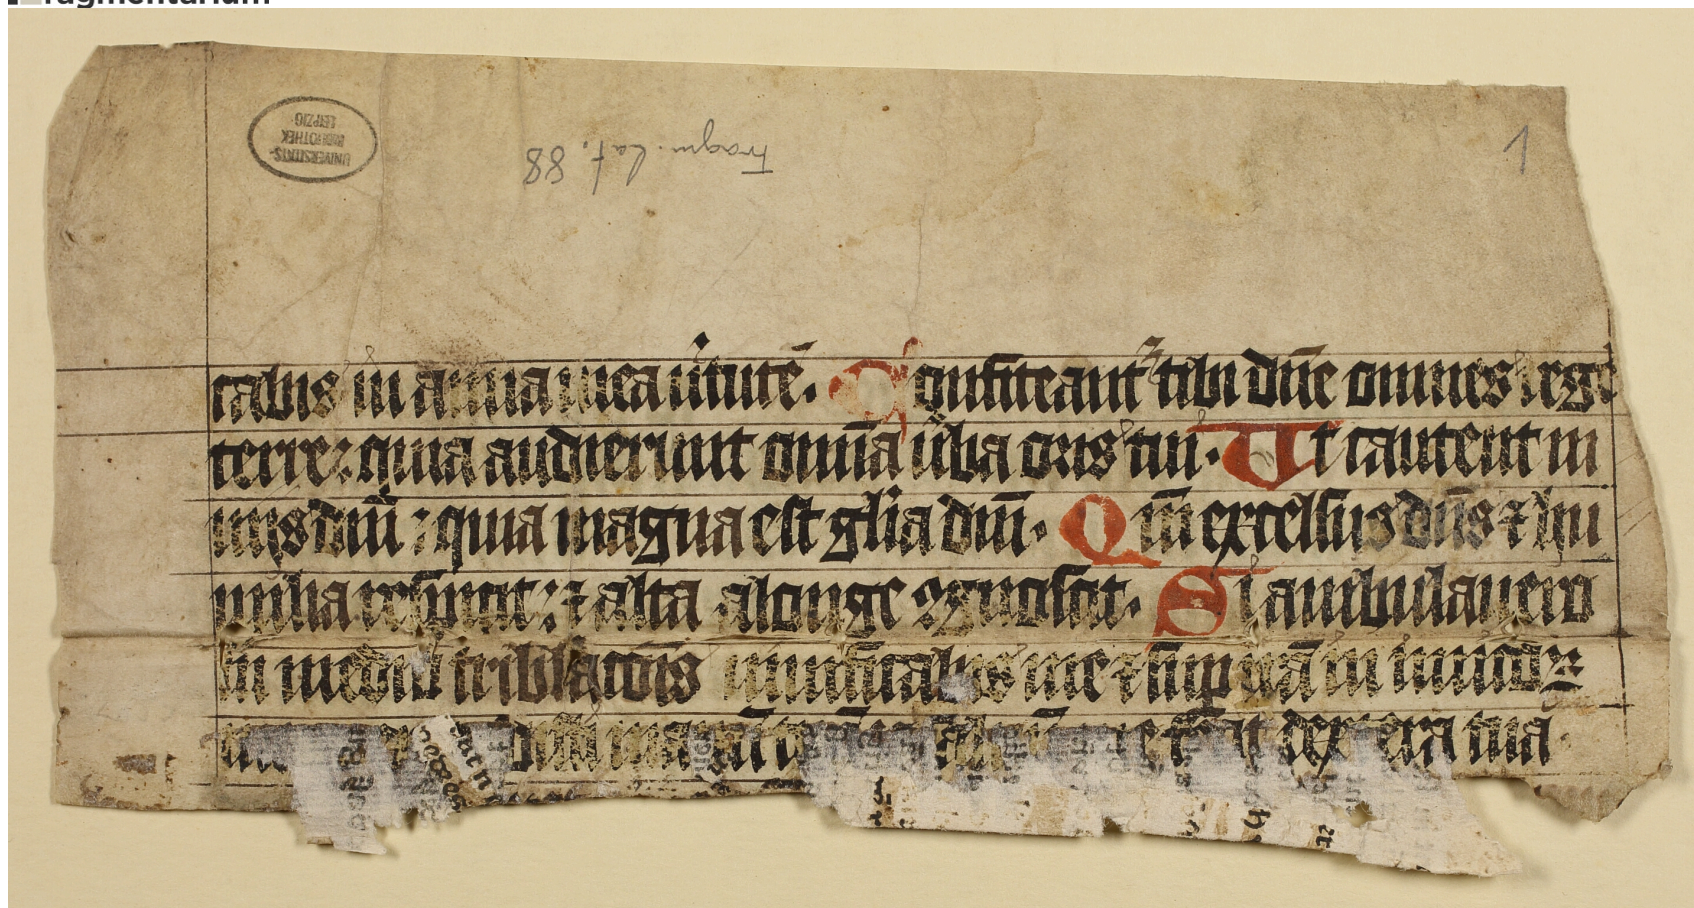 ragmentarium
UNIVERSITÄTS-
BIBLIOTHEK
LEIPZIG
Fragm. Lat. 88
1
cabis in anima mea ũtutẽ. Confiteant᷑ tibi dñe omnes reg
terre: quia audierunt omĩa ũba oris tui. Ut cantent in
uijs dñi: quia magna est glĩa dñi. Qm̃ excelsus dñs ⁊ hu
milia respicit: ⁊ alta alonge ꝯgnoscit. Si ambulauero
in medio tribulatõis uiuificabis me ⁊ suꝑ irã inimicoꝝ
manũ tuã dextera tua